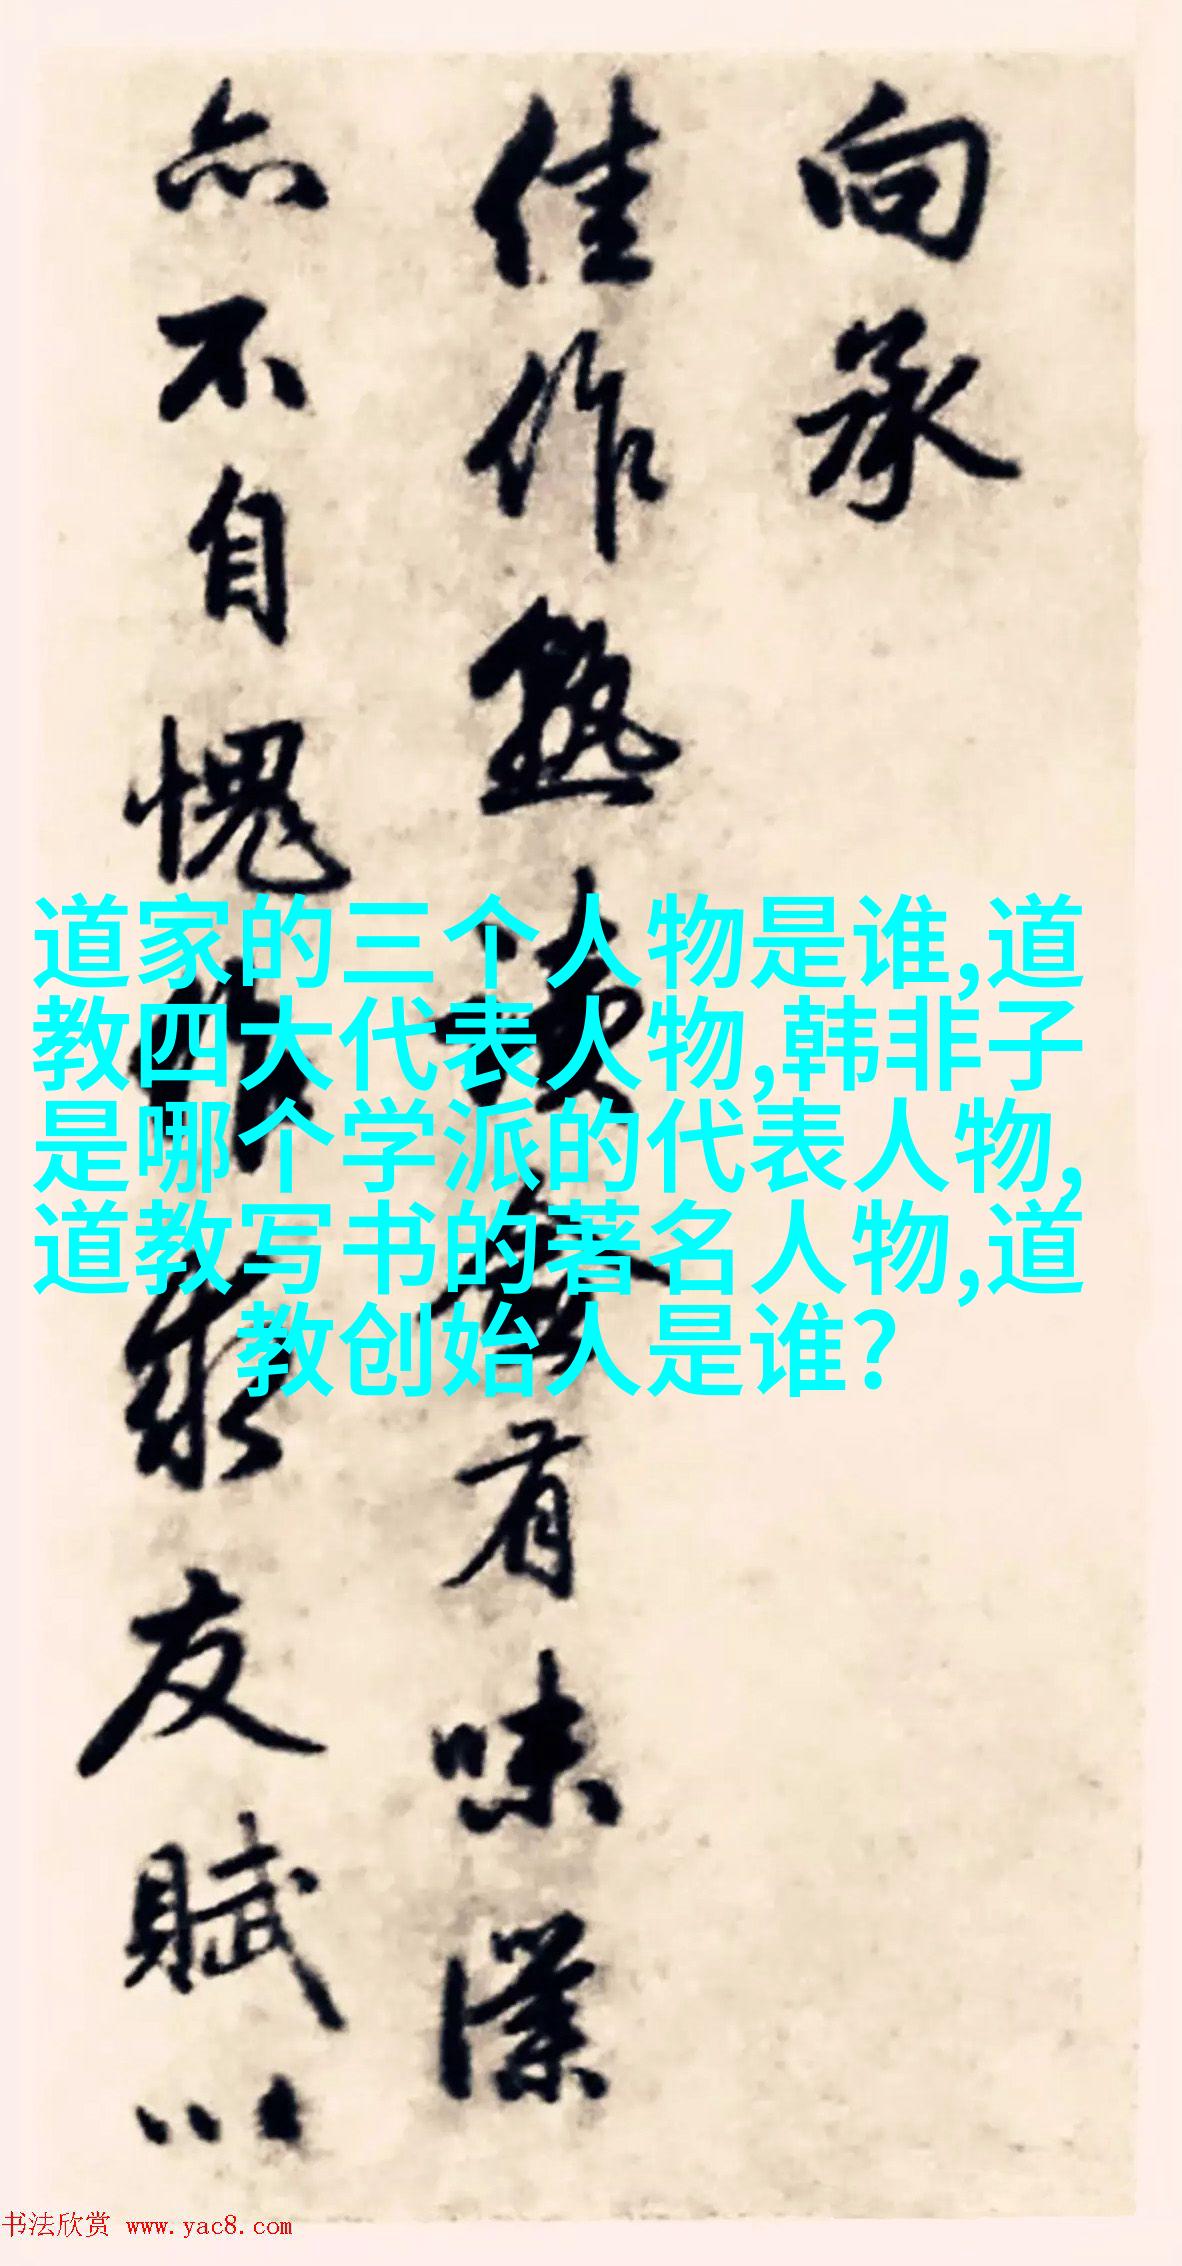 向承
佳作熟读数有味深
亦不自愧作报友赋以
道家的三个人物是谁,道
教四大代表人物,韩非子
是哪个学派的代表人物,
道教写书的著名人物,道
教创始人是谁?
书法欣赏 www.yac8.com